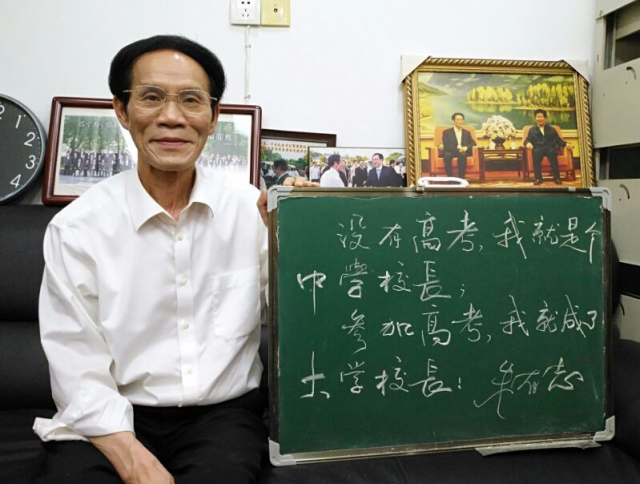 没有高考,我就是个
中学校長;
参加高考,我就成了
大学校長! 朱有志
12
1
2
3
4
5